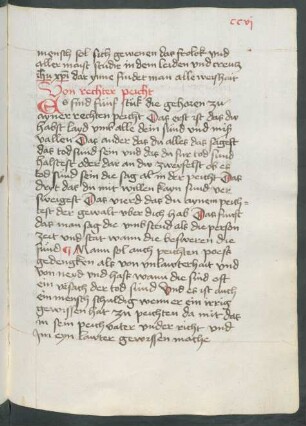 ccvi
mensch sol sich gewenen das frolok und
aller maist studir in dem leiden und creutz
ihu xpi dar jnne findet man alle weishait
Von rechter peicht
Es sind funf stuk die gehoren zu
ayner rechten peicht Das erst ist das du
habst layd umb alle dein sünd und mis
vallen Das ander das du alles das sagest
das tod sünd sein und das du fur tod sünd
haltest oder dar an du zweyfelst ob es
tod sünd sein die sag al in der peicht Das
drit das du mit willen kayn sünd ver
sweigest Das vierd das du aynem peich
test der gewalt uber dich hab Das funft
das man sag die umbstend als die person
zeit und stat wann die beswerent die
sünd Man sol auch peichten poess
gedengken als von unlauterhait und
von neyd und hass wann die sind oft
ein ursach der tod sünd Und es ist auch
ein mensch schuldig wenn er ein irrig
gewissen hat zu peichten da mit das
in sein peichvater under richt und
im eyn lauter gewissen mache